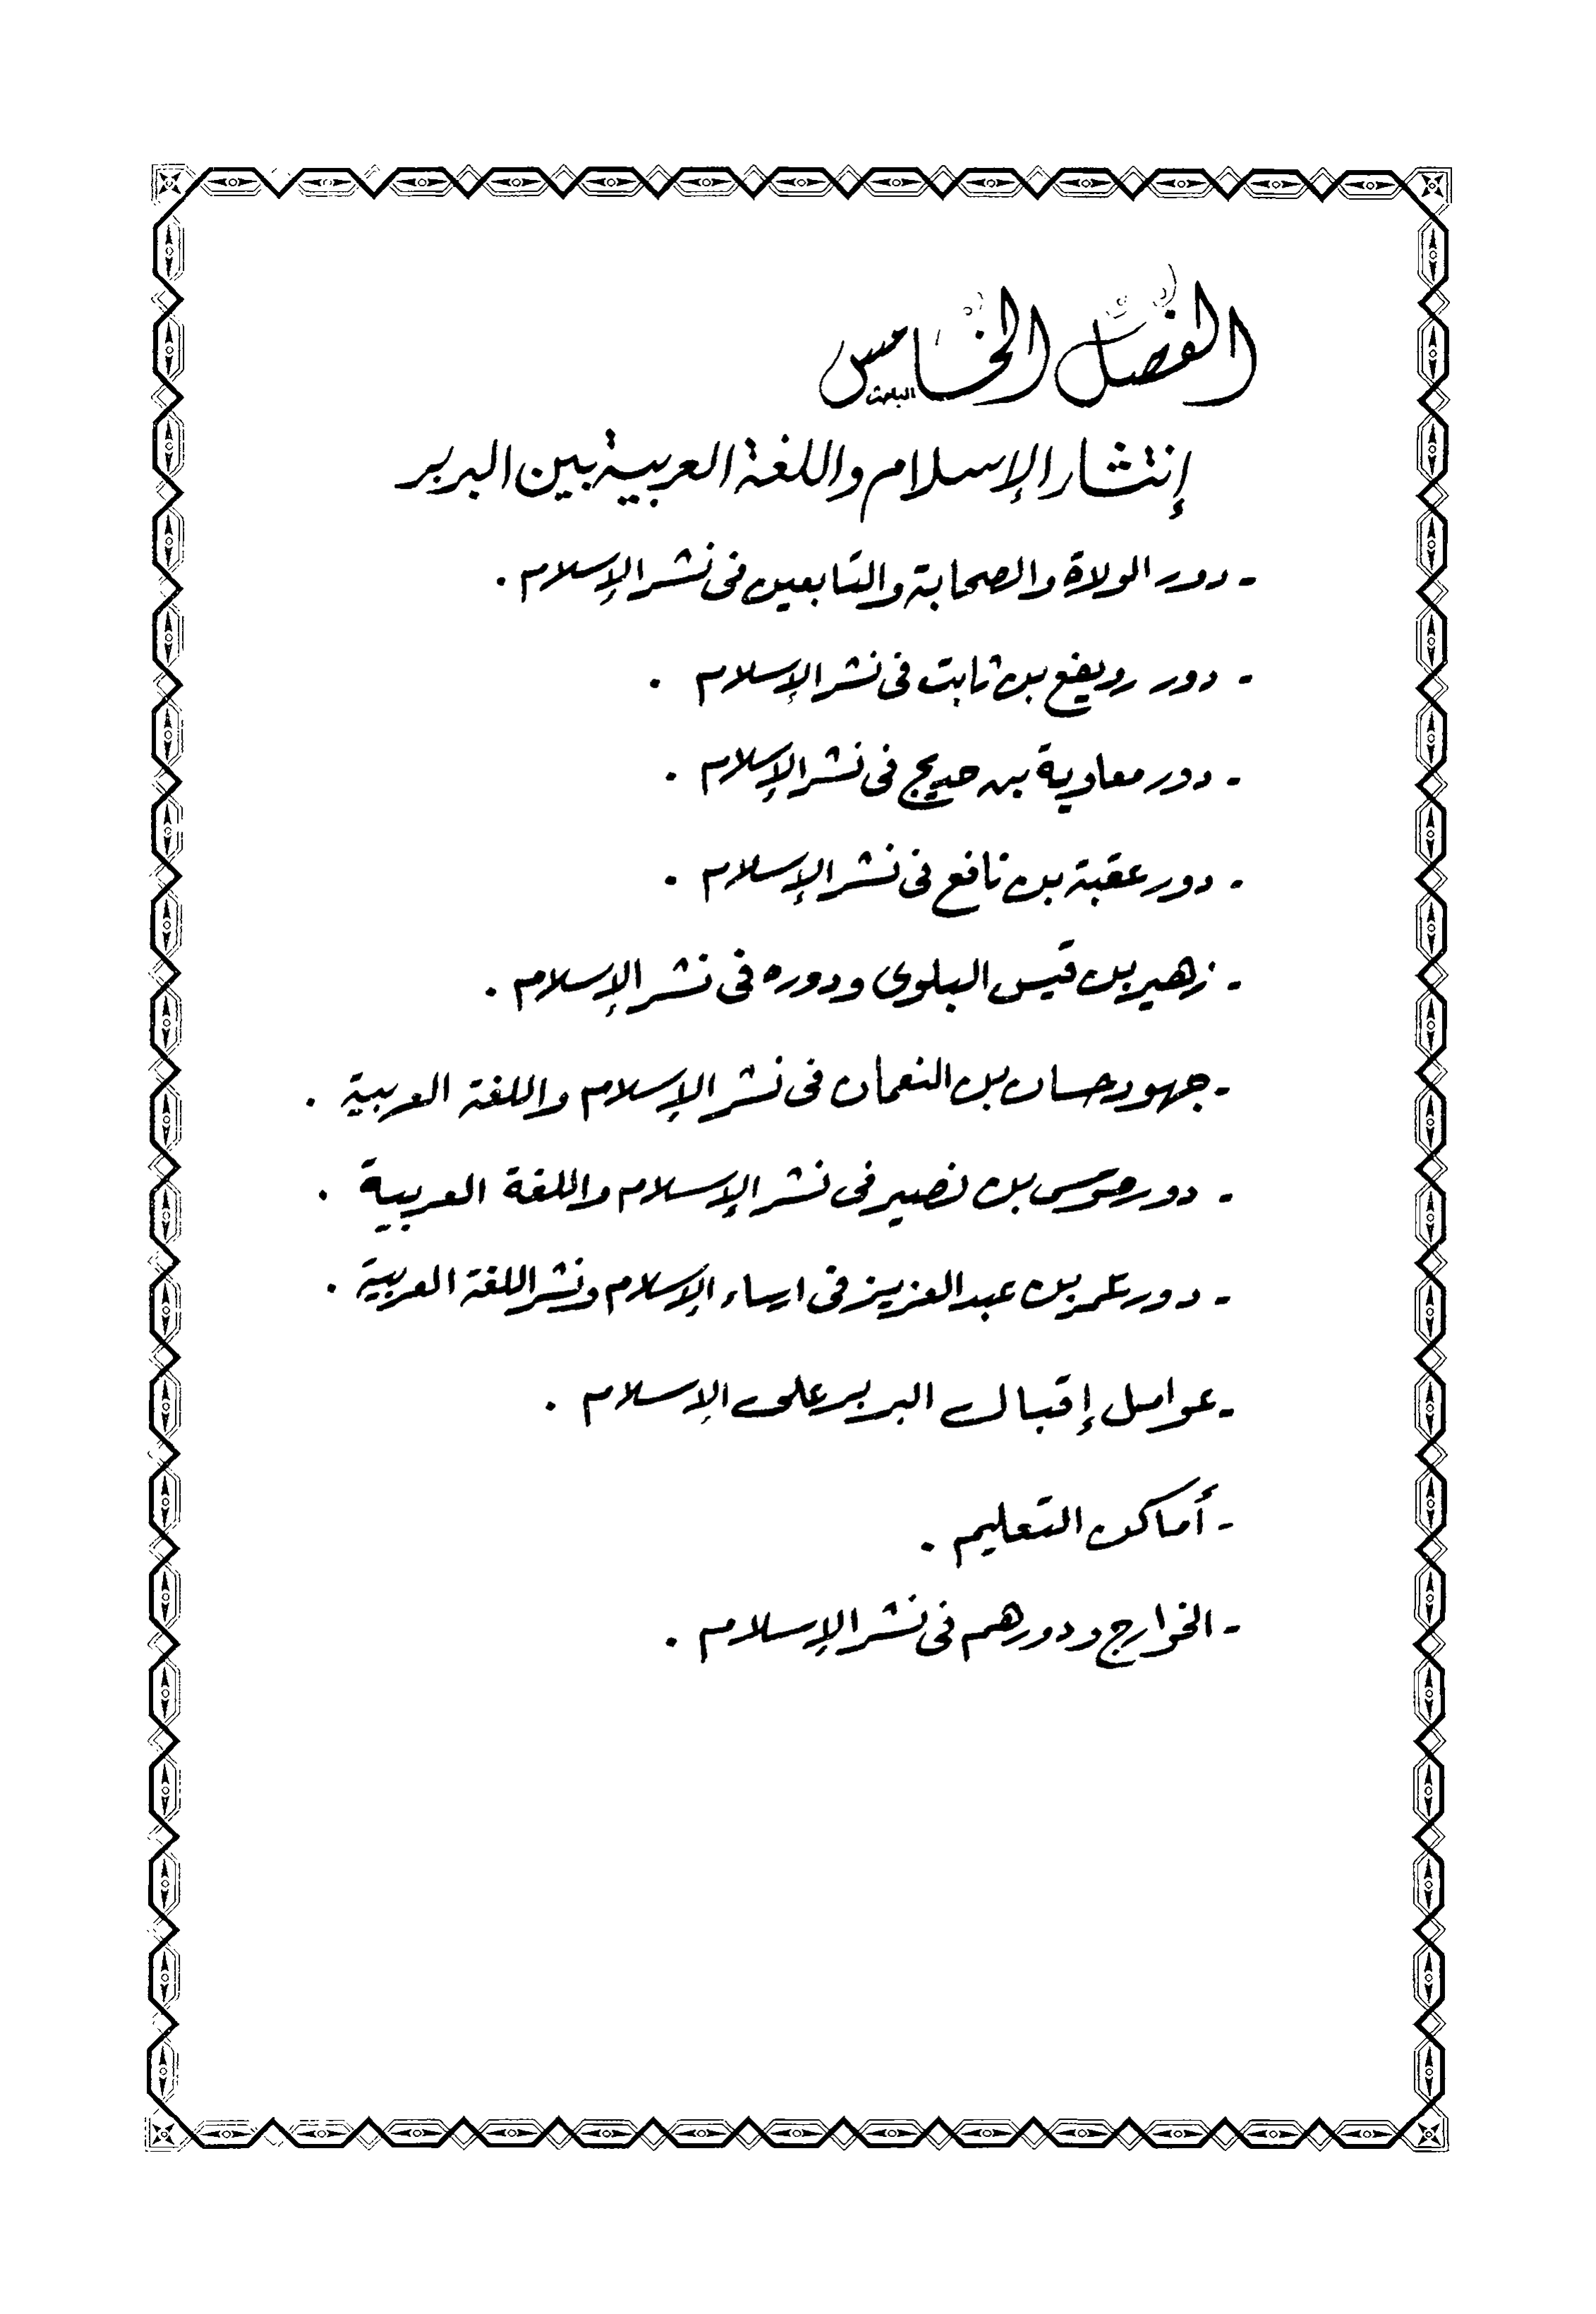 الفصل الخامس
إنتشار الإسلام واللغة العربية بين البربر
- دور الولاة والصحابة والتابعين فى نشر الإسلام .
- دور رويفع بن ثابت فى نشر الإسلام .
- دور معاوية بن حديج فى نشر الإسلام .
- دور عقبة بن نافع فى نشر الإسلام .
- زهير بن قيس البلوى ودوره فى نشر الإسلام .
- جهود حسان بن النعمان فى نشر الإسلام واللغة العربية .
- دور موسى بن نصير فى نشر الإسلام واللغة العربية .
- دور عمر بن عبد العزيز فى ارساء الإسلام ونشر اللغة العربية .
- عوامل إقبال البربر على الإسلام .
- أماكن التعليم .
- الخوارج ودورهم فى نشر الإسلام .